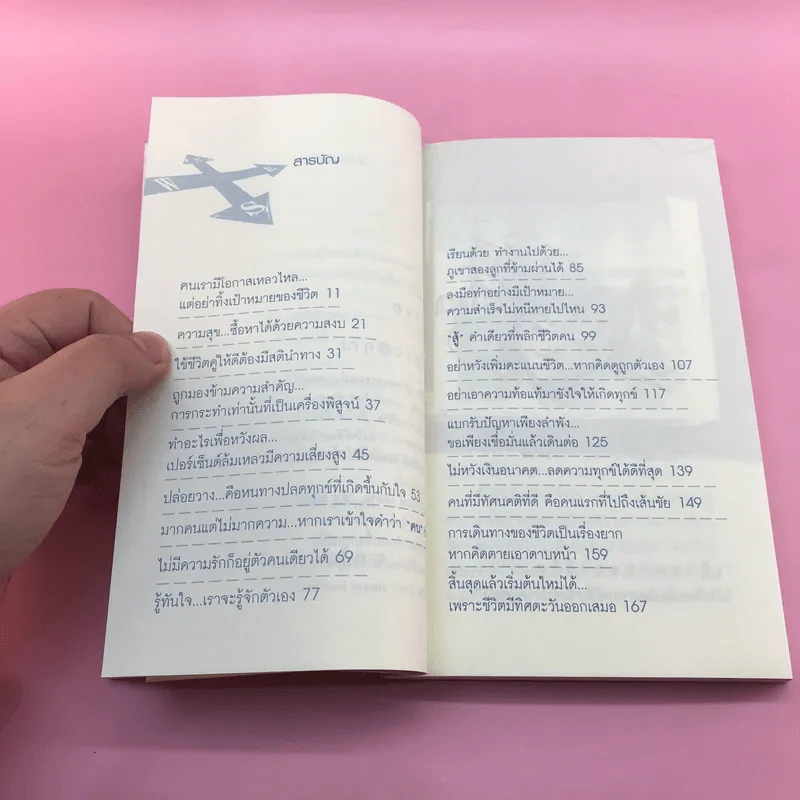 สารบัญ
W
S
คนเรามีโอกาสเหลวไหล...
แต่อย่าทิ้งเป้าหมายของชีวิต 11
ความสุข...ซื้อหาได้ด้วยความสงบ 21
ใช้ชีวิตคู่ให้ดีต้องมีสตินำทาง 31
ถูกมองข้ามความสำคัญ...
การกระทำเท่านั้นที่เป็นเครื่องพิสูจน์ 37
ทำอะไรเพื่อหวังผล...
เปอร์เซ็นต์ล้มเหลวมีความเสี่ยงสูง 45
ปล่อยวาง...คือหนทางปลดทุกข์ที่เกิดขึ้นกับใจ 53
มากคนแต่ไม่มากความ...หากเราเข้าใจคำว่า "คน"
ไม่มีความรักก็อยู่ตัวคนเดียวได้ 69
รู้ทันใจ...เราจะรู้จักตัวเอง 77
เรียนด้วย ทำงานไปด้วย...
ภูเขาสองลูกที่ข้ามผ่านได้ 85
ลงมือทำอย่างมีเป้าหมาย...
ความสำเร็จไม่หนีหายไปไหน 93
"สู้" คำเดียวที่พลิกชีวิตคน 99
อย่าหวังเพิ่มคะแนนชีวิต...หากคิดดูถูกตัวเอง 107
อย่าเอาความท้อแท้มาขังใจให้เกิดทุกข์ 117
แบกรับปัญหาเพียงลำพัง...
ขอเพียงเชื่อมั่นแล้วเดินต่อ 125
ไม่หวังเงินอนาคต...ลดความทุกข์ได้ดีที่สุด 139
คนที่มีทัศนคติที่ดี คือคนแรกที่ไปถึงเส้นชัย 149
การเดินทางของชีวิตเป็นเรื่องยาก
หากคิดตายเอาดาบหน้า 159
สิ้นสุดแล้วเริ่มต้นใหม่ได้...
เพราะชีวิตมีทิศตะวันออกเสมอ 167